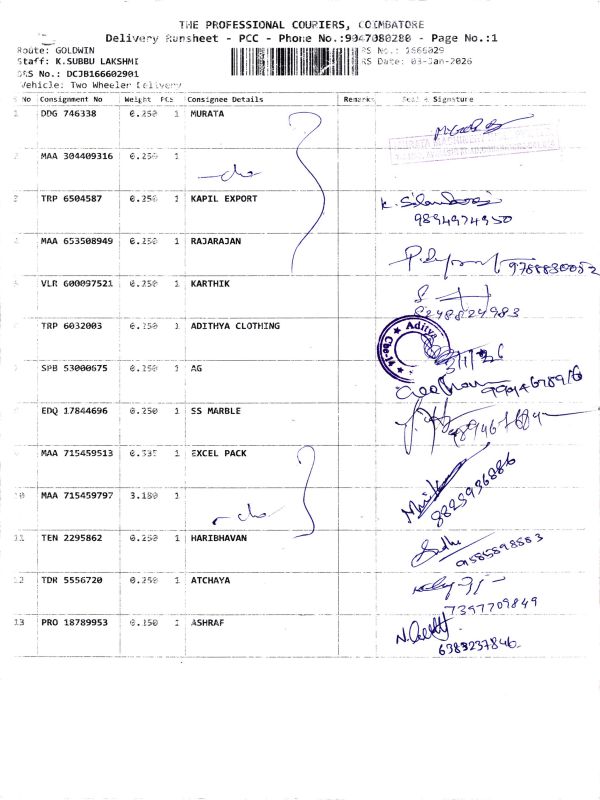 THE PROFESSIONAL COURIERS, COIMBATORE
Delivery Runsheet - PCC - Phone No.:9047080280 - Page No.:1
Route: GOLDWIN
RS No.: 1666029
Staff: K.SUBBU LAKSHMI
RS Date: 03-Jan-2026
DRS No.: DCJB166602901
Vehicle: Two Wheeler Delivery
S No Consignment No Weight PCS Consignee Details Remarks Seal & Signature
1 DDG 746338 0.250 1 MURATA
2 MAA 304409316 0.250 1
3 TRP 6504587 0.250 1 KAPIL EXPORT
9894974950
4 MAA 653508949 0.250 1 RAJARAJAN
9788830052
5 VLR 600097521 0.250 1 KARTHIK
8248824983
TRP 6032003 0.250 1 ADITHYA CLOTHING
Aditya
3/1/26
SPB 53000675 0.250 1 AG
EDQ 17844696 0.250 1 SS MARBLE
MAA 715459513 0.535 1 EXCEL PACK
8825936886
10 MAA 715459797 3.180 1
11 TEN 2295862 0.250 1 HARIBHAVAN
Sudha
9585898583
12 TDR 5556720 0.250 1 ATCHAYA
7397709849
13 PRO 18789953 0.150 1 ASHRAF
6383237846